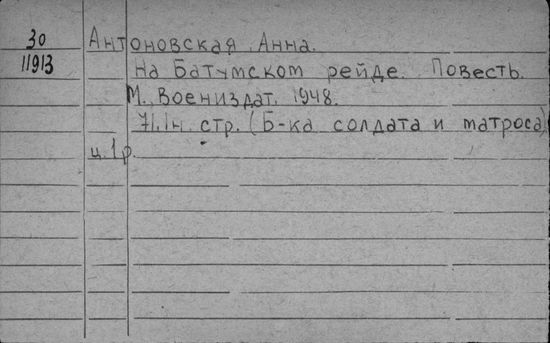 30 Антоновская Анна.
11913 На Батумском рейде. Повесть.
М., Воениздат. 1948.
71.1н. стр. (Б-ка солдата и матроса)
ц. 1р.